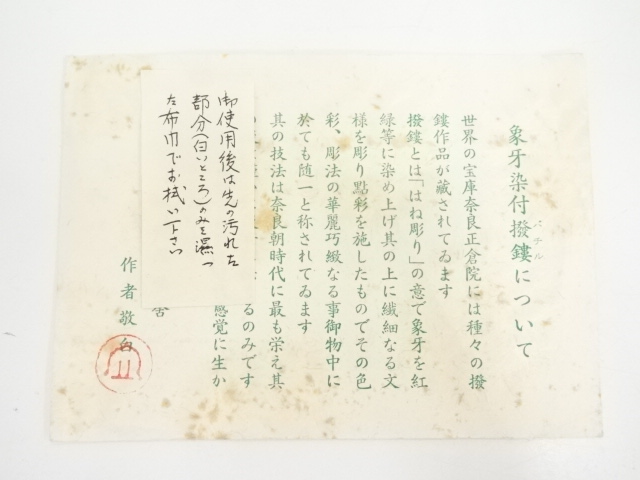 象牙染付撥鏤について
バチル
世界の宝庫奈良正倉院には種々の撥
鏤作品が蔵されてゐます
撥鏤とは「はね彫り」の意で象牙を紅
緑等に染め上げ其の上に繊細なる文
様を彫り點彩を施したものでその色
彩、彫法の華麗巧緻なる事御物中に
於ても随一と称されてゐます
其の技法は奈良朝時代に最も栄え其
るのみです
感覚に生か
舍
作者敬白
御使用後は先の汚れた
部分(白いところ)のみを濕つ
た布巾でお拭い下さい